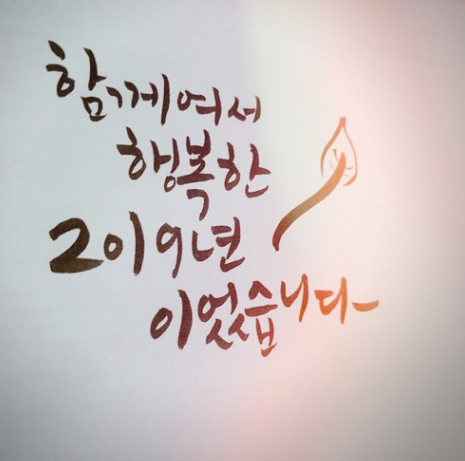 함께여서
행복한
2019년
이었습니다~